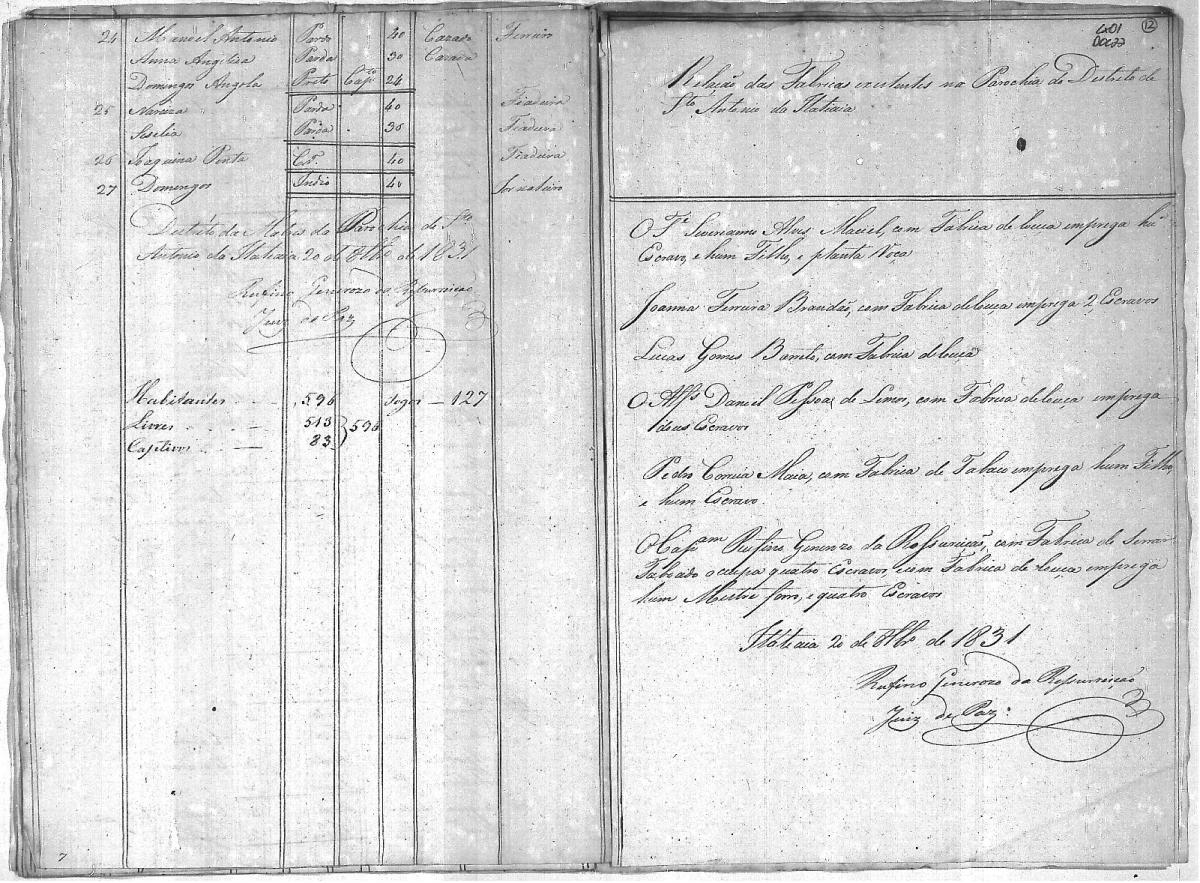 24 Manoel Antonio Pardo 40 Cazado Ferreiro
Anna Angelica Parda 30 Cazada
Domingos Angola Preto Capto 24
25 Narciza Parda 40 Fiadeira
Sesilia Parda 30 Fiadeira
26 Joaquina Penta Cra 40 Fiadeira
27 Domingos Indio 40 Jornaleiro
Destrito da Parochia de Sto
Antonio da Itatiaia 20 de 8bro de 1831
Rufino Generozo da Ressurreiçao
Juiz de Paz
Habitantes 596 Fogos — 127
Livres 513 } 596
Captivos 83
7
CX01
DOC22
12
Relação das Fabricas existentes na Parochia do Destrito de
Sto Antonio da Itatiaia
O Te Severianno Alves Maciel, com Fabrica de louça emprega hũ
Escravo, e hum Filho, e planta Roça
Joanna Ferreira Brandão, com Fabrica de louça emprega 2 Escravos
Lucas Gomes Barreto, com Fabrica de louça
O Alfs Daniel Pessoa de Lemos, com Fabrica de louça emprega
deus Escravos
Pedro Correia Maia, com Fabrica de Tabaco emprega hum Filho,
e hum Escravo
O Capam Rufino Generozo da Ressurreição, com Fabrica de serrar
Taboado ocupa quatro Escravos, e com Fabrica de louça emprega
hum Mestre forro, e quatro Escravos
Itatiaia 20 de 8bro de 1831
Rufino Generozo da Ressurreição
Juiz de Paz